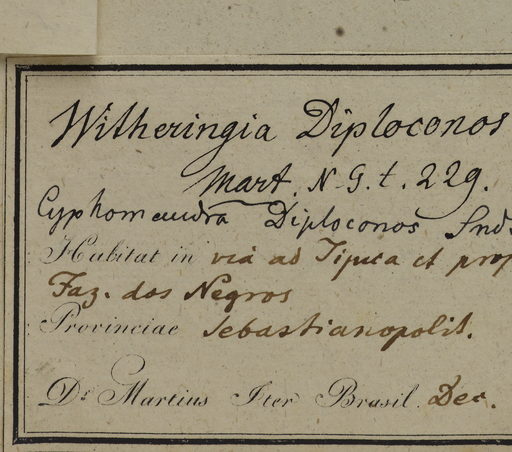 Witheringia Diploconos
Mart. N. G. t. 229.
Cyphomandra Diploconos Snd.
Habitat in via ad Tijuca et prop
Faz. dos Negros
Provinciae Sebastianopolit.
Dr. Martius Iter Brasil. Dec.